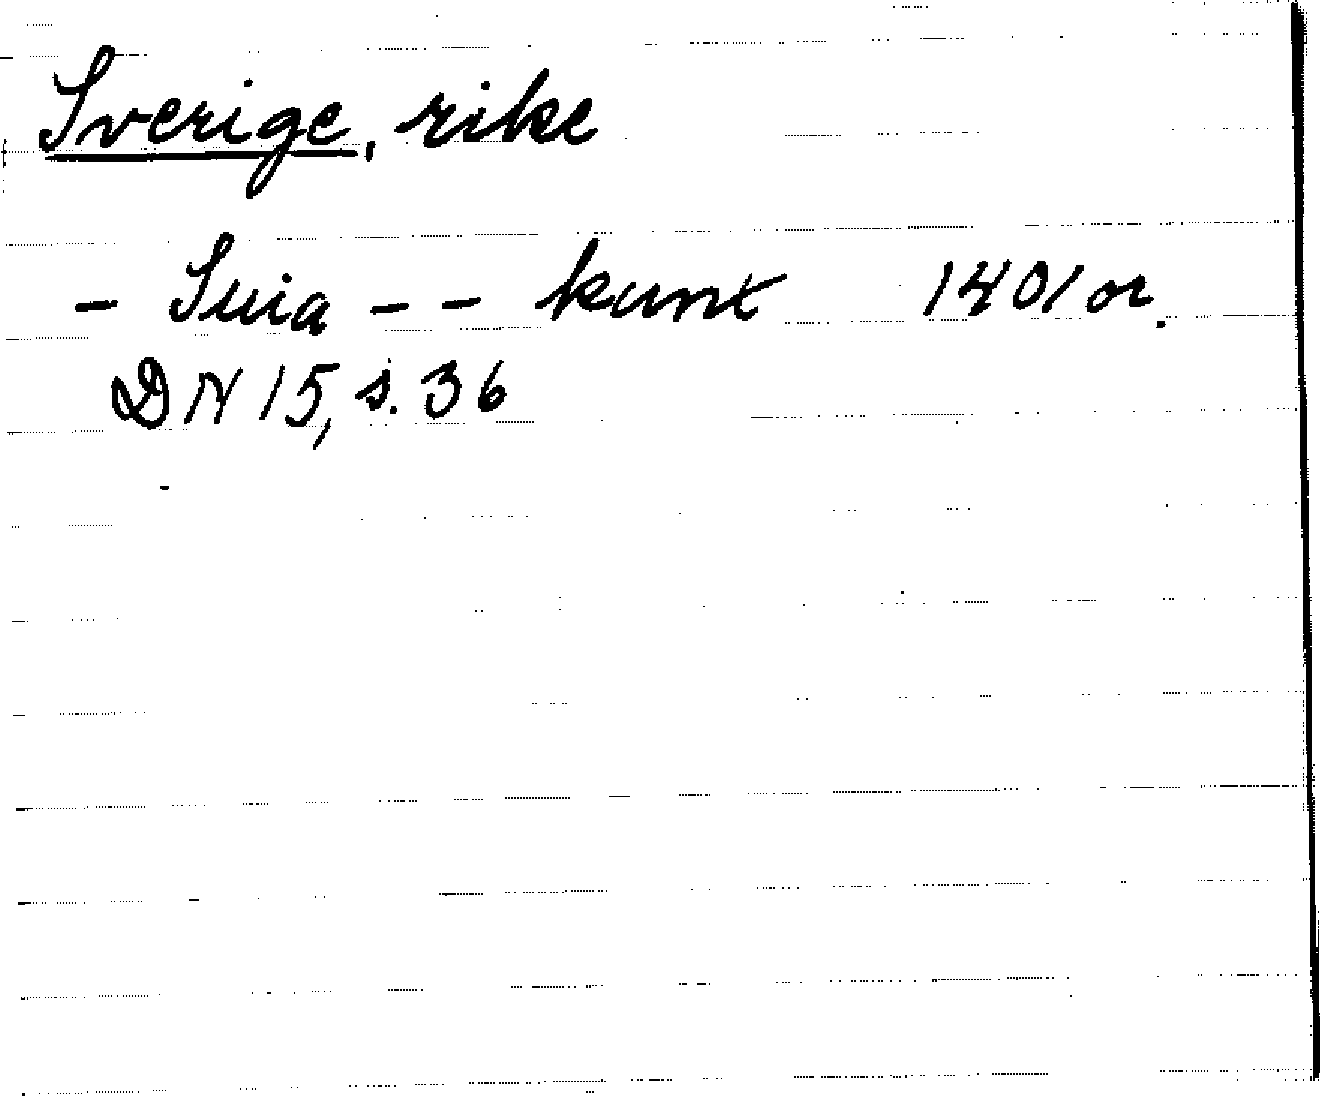 Sverige, rike
- Suia - - kunx 1401 or.
DN 15, s. 36